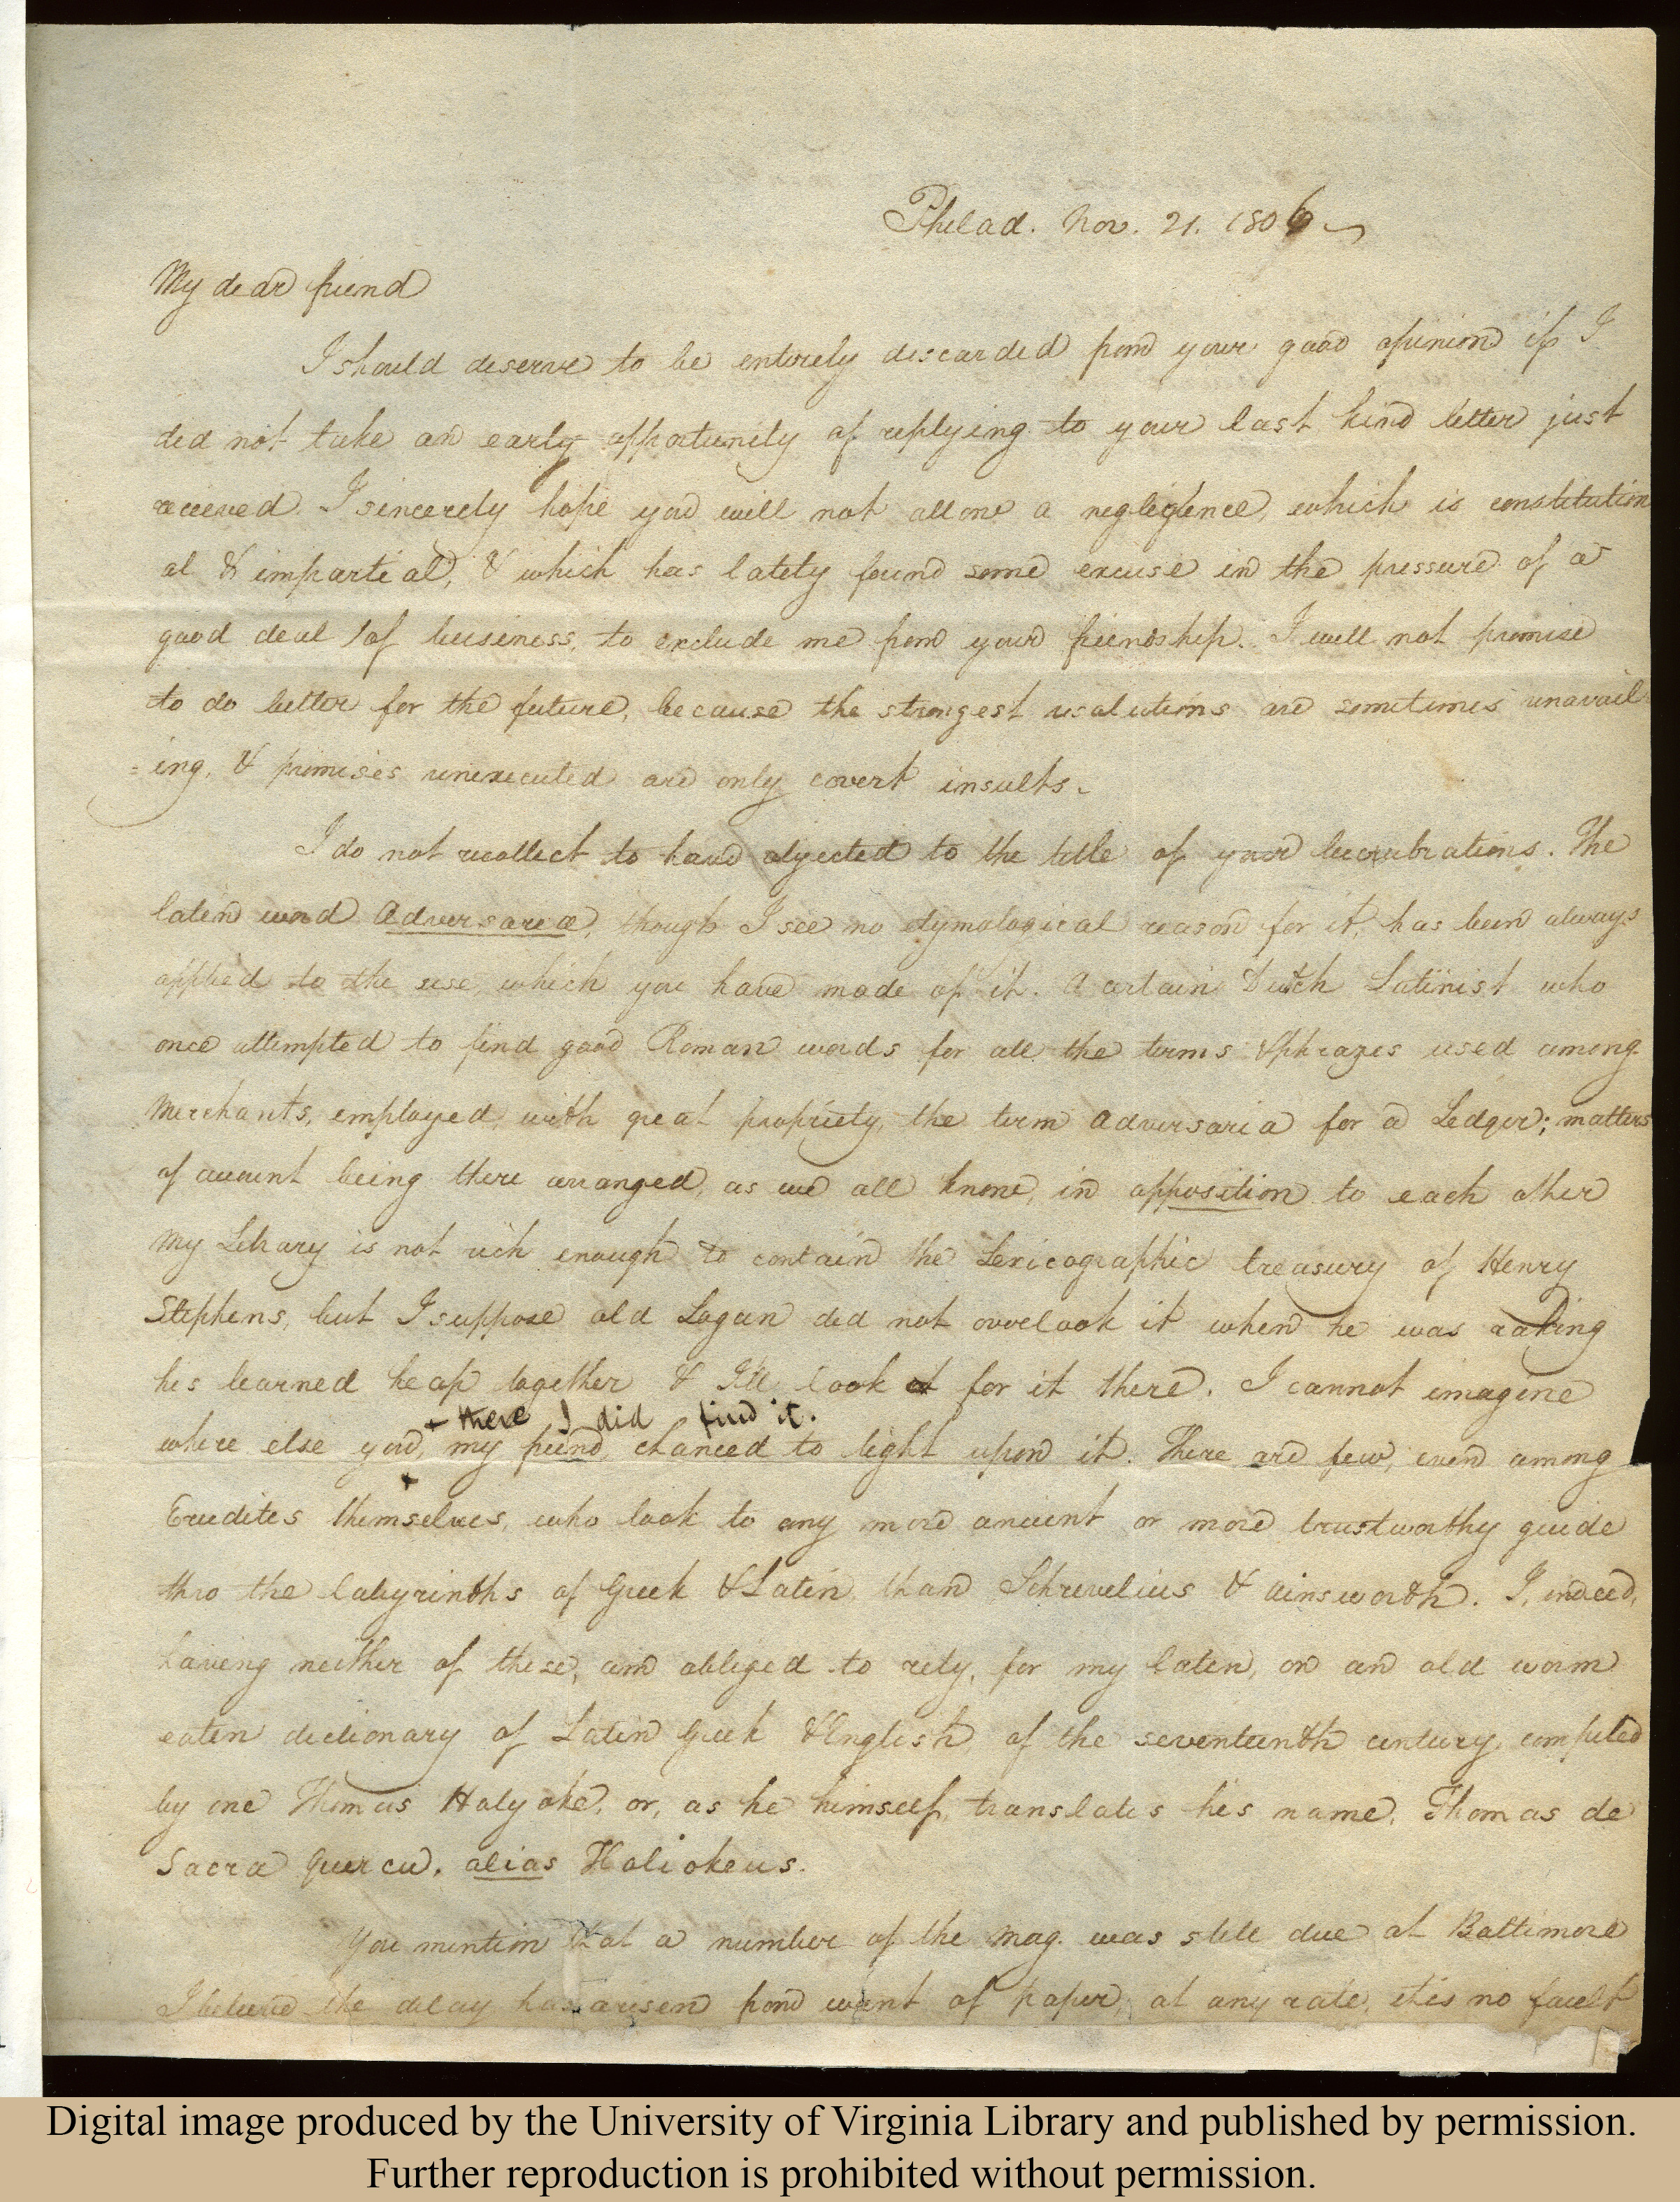 Philad. Nov. 21. 1806
My dear friend
I should deserve to be entirely discarded from your good opinion if I
did not take an early opportunity of replying to your last kind letter just
received. I sincerely hope you will not allow a negligence, which is constitution
al & impartial, & which has lately found some excuse in the pressure of a
good deal of business, to exclude me from your friendship. I will not promise
to do better for the future, because the strongest resolutions are sometimes unavail
=ing, & promises unexecuted are only covert insults.
I do not recollect to have objected to the title of your lucubrations. The
latin word Adversaria, though I see no etymological reason for it, has been always
applied to the use which you have made of it. A certain Dutch Latinist who
once attempted to find good Roman words for all the terms & phrazes used among
Merchants, employed, with great propriety, the term Adversaria for a Ledger; matters
of account being there arranged, as we all know, in opposition to each other
My Library is not rich enough to contain the Lexicographic treasury of Henry
Stephens, but I suppose old Logan did not overlook it when he was raking
his learned heap together & I'll look for it there. I cannot imagine
+ there I did find it.
where else you, my friend, chanced to light upon it. There are few, even among
+
Erudites themselves, who look to any more ancient or more trustworthy guide
thro the labyrinths of Greek & Latin, than Schrevelius & Ainsworth. I, indeed,
having neither of these, am obliged to rely, for my latin, on an old worm
eaten dictionary of Latin Greek & English, of the seventeenth century, compiled
by one Thomas Holyoke, or, as he himself, translates his name, Thomas de
Sacra Quercu, alias Holiokeus.
You mention that a number of the Mag. was still due at Baltimore
I believe the delay has arisen from want of paper; at any rate, it is no fault
Digital image produced by the University of Virginia Library and published by permission.
Further reproduction is prohibited without permission.